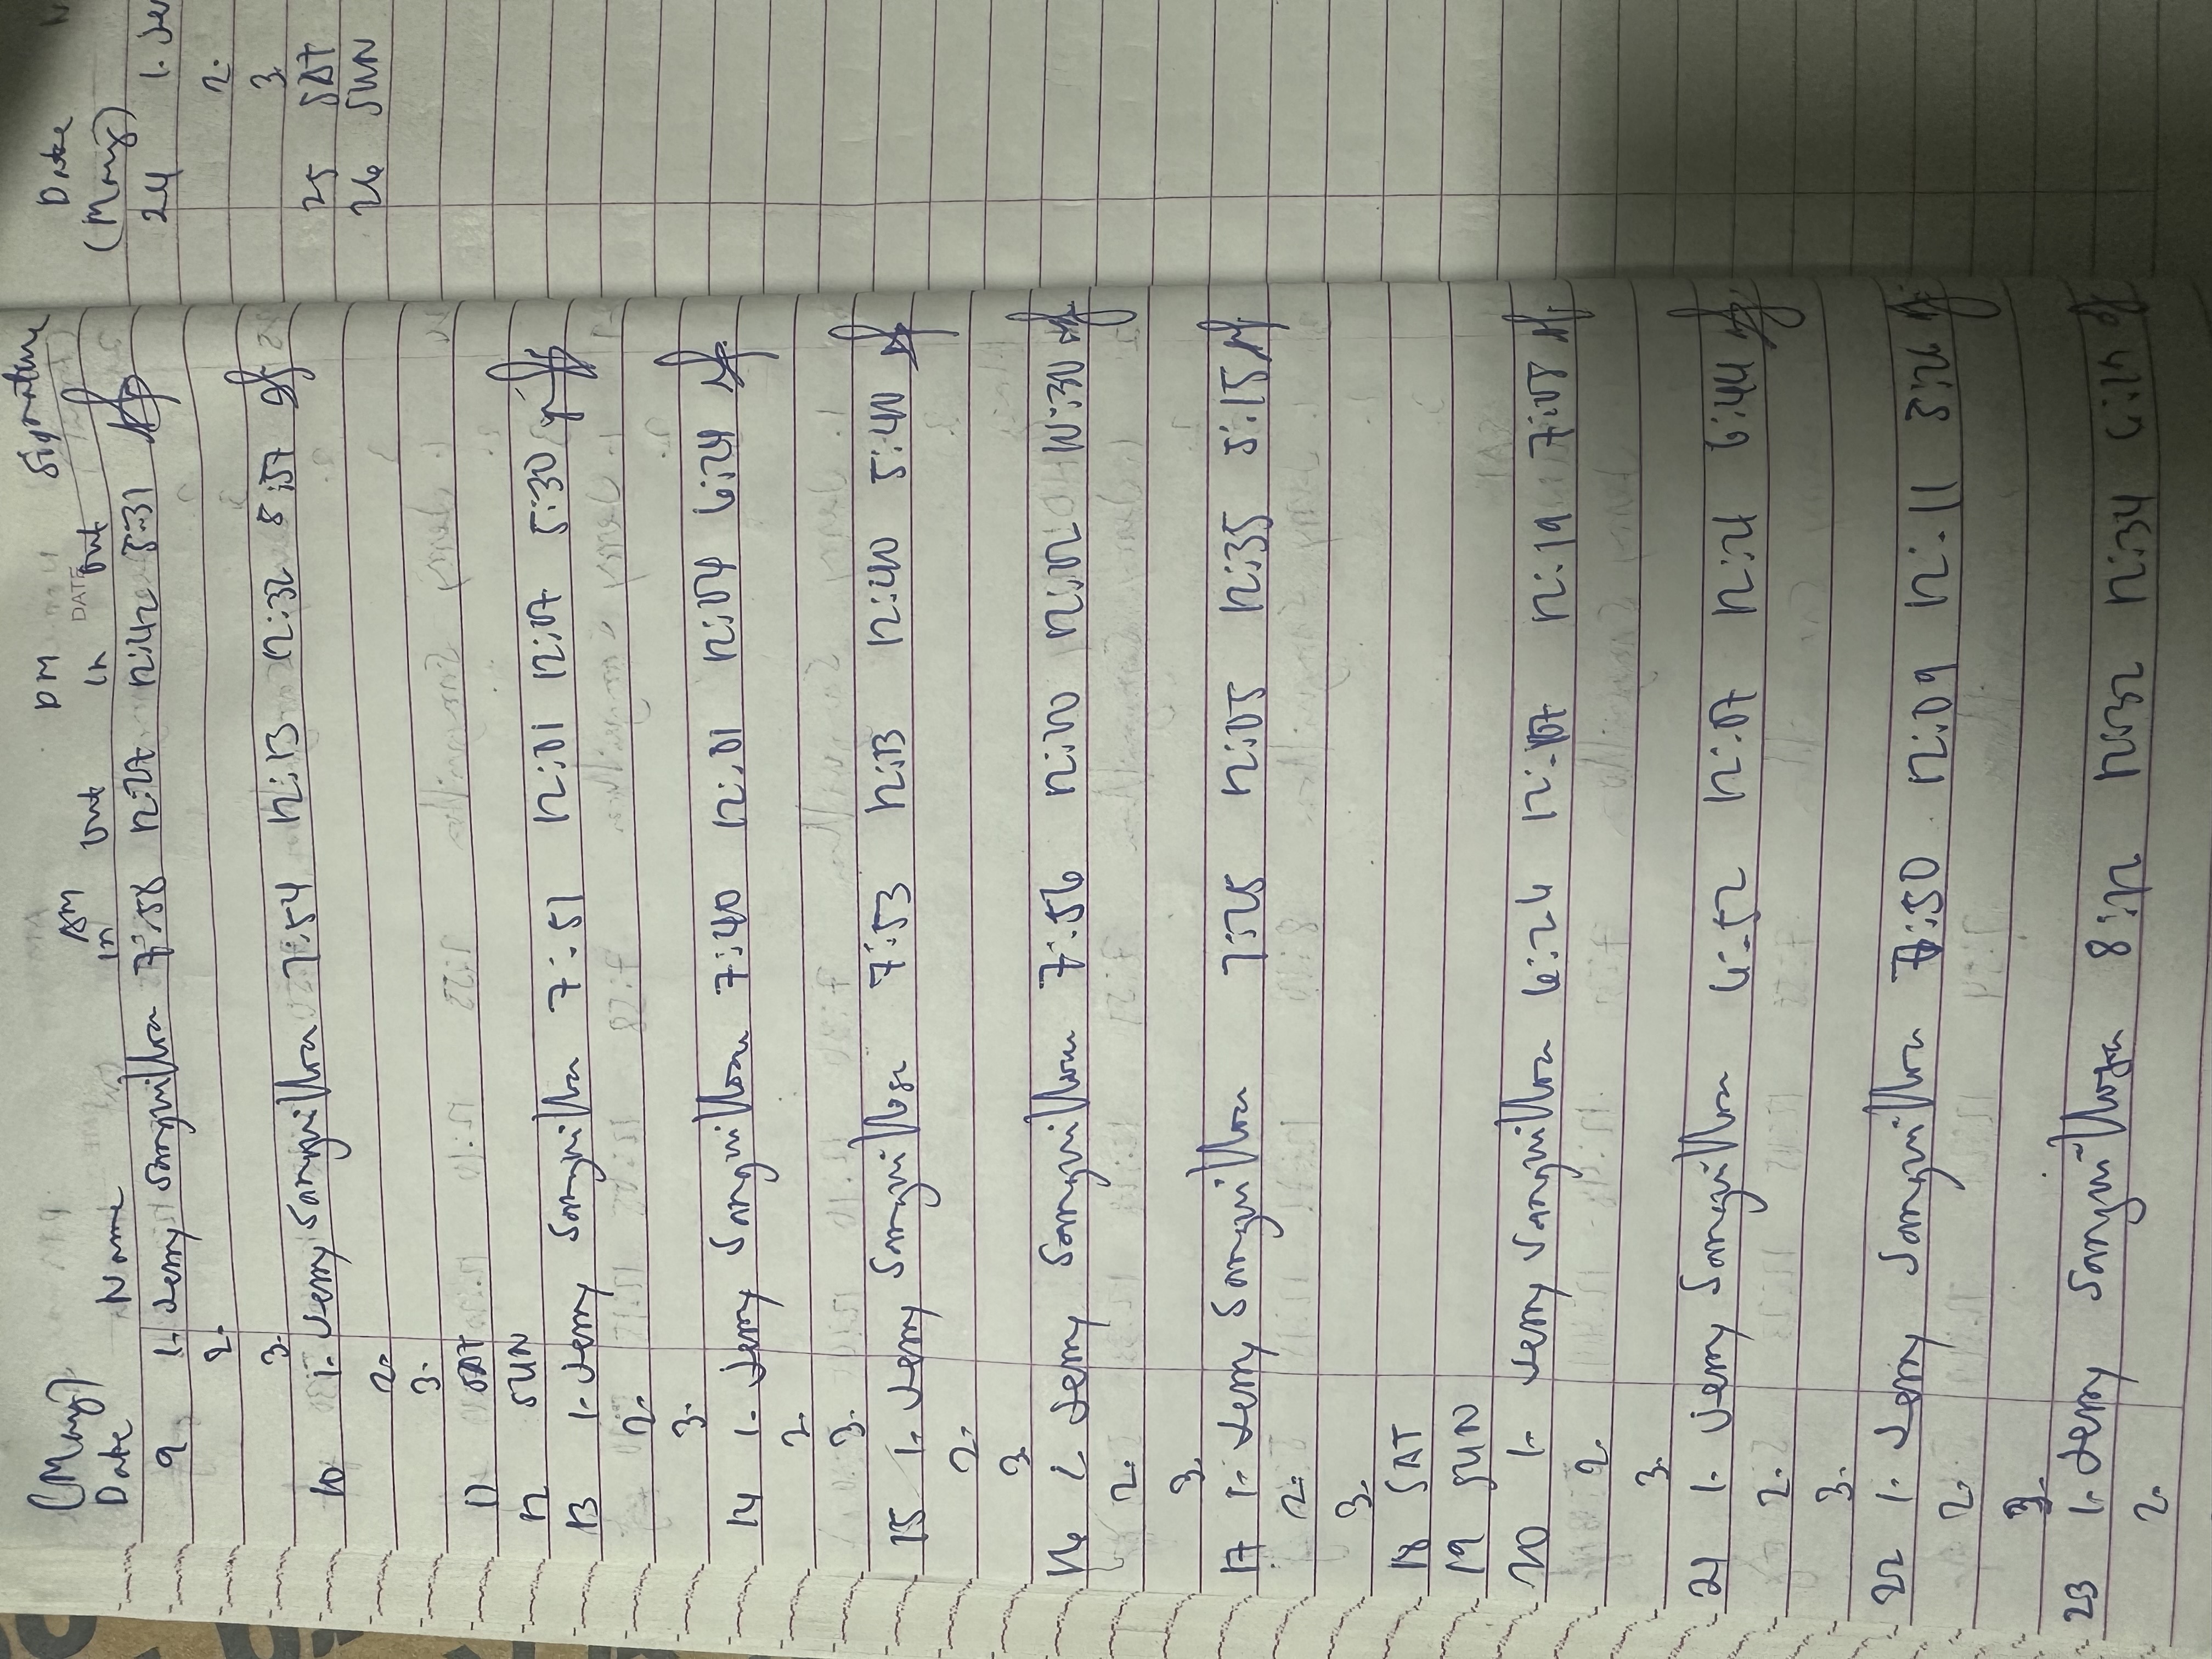 (May)
Date Name AM In Out PM In Out Signature
DATE
9 1. Jerry Sanquillosa 7:58 12:27 12:42 5:31
2.
3.
10 1. Jerry Sanquillosa 7:54 12:13 12:32 5:57
2.
3.
11 SAT
12 SUN
13 1. Jerry Sanquillosa 7:51 12:01 12:07 5:30
2.
3.
14 1. Jerry Sanquillosa 7:40 12:01 12:04 6:24
2.
3.
15 1. Jerry Sanquillosa 7:53 12:13 12:40 5:40
2.
3.
16 1. Jerry Sanquillosa 7:56 12:00 12:02 10:30
2.
3.
17 1. Jerry Sanquillosa 7:25 12:05 12:35 5:15
2.
3.
18 SAT
19 SUN
20 1. Jerry Sanquillosa 6:24 12:07 12:19 7:08
2.
3.
21 1. Jerry Sanquillosa 6:52 12:07 12:21 6:44
2.
3.
22 1. Jerry Sanquillosa 7:50 12:09 12:11
2.
3.
23 1. Jerry Sanquillosa 8:12 12:32 12:34 6:14
2.
Date
(May)
24 1. Je
2.
3.
25 SAT
26 SUN